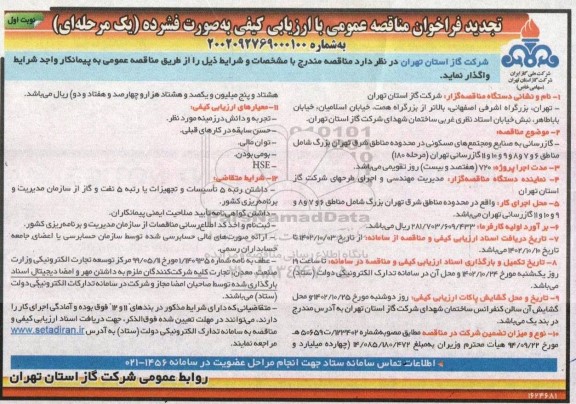 نوبت اول
تجدید فراخوان مناقصه عمومی با ارزیابی کیفی به‌صورت فشرده (یک مرحله‌ای)
به‌شماره ۲۰۰۲۰۹۲۷۶۹۰۰۰۱۰۰
شرکت ملی گاز ایران
شرکت گاز استان تهران
(سهامی خاص)
شرکت گاز استان تهران در نظر دارد مناقصه مندرج با مشخصات و شرایط ذیل را از طریق مناقصه عمومی به پیمانکار واجد شرایط
واگذار نماید.
۱- نام و نشانی دستگاه مناقصه‌گزار: شرکت گاز استان تهران
- تهران، بزرگراه اشرفی اصفهانی، بالاتر از بزرگراه همت، خیابان اسلامیان، خیابان
باباطاهر، نبش خیابان استاد نظری غربی ساختمان شهدای شرکت گاز استان تهران.
۲- موضوع مناقصه:
- گازرسانی به صنایع و مجتمع‌های مسکونی در محدوده مناطق شرق تهران بزرگ شامل
مناطق ۶ و ۷ و ۸ و ۹ و ۱۰ و ۱۱ گازرسانی تهران (مرحله ۱۸۰)
۳- مدت اجرا پروژه: ۷۲۰ (هفتصد و بیست) روز تقویمی می‌باشد.
۴- نماینده دستگاه مناقصه‌گزار: مدیریت مهندسی و اجرای طرحهای شرکت گاز
استان تهران
۵- محل اجرای کار: واقع در محدوده مناطق شرق تهران بزرگ شامل مناطق ۶ و ۷ و ۸ و
۹ و ۱۰ و ۱۱ گازرسانی تهران می‌باشد.
۶- بر آورد اولیه کارفرما: ۲۸۱/۷۰۳/۶۰۹/۴۳۳ ریال می‌باشد.
۷- تاریخ دریافت اسناد ارزیابی کیفی و مناقصه از سامانه: از تاریخ ۱۴۰۲/۱۰/۰۳ تا
تاریخ ۱۴۰۲/۱۰/۱۰ می‌باشد.
۸- تاریخ تکمیل و بارگذاری اسناد ارزیابی کیفی و مناقصه در سامانه: تا ساعت ۱۹
روز یکشنبه مورخ ۱۴۰۲/۱۰/۲۴ و محل آن در سامانه تدارک الکترونیکی دولت (ستاد)
می‌باشد.
۹- تاریخ و محل گشایش پاکات ارزیابی کیفی: روز دوشنبه مورخ ۱۴۰۲/۱۰/۲۵ و محل
گشایش آن سالن کنفرانس ساختمان شهدای شرکت گاز استان تهران به آدرس مندرج
در بند یک می‌باشد.
۱۰- نوع و میزان تضمین شرکت در مناقصه مطابق مصوبه شماره ۱۲۳۴۰۲/ت۵۰۶۵۹هـ
مورخ ۹۴/۰۹/۲۲ هیأت محترم وزیران به‌مبلغ ۱۴/۰۸۵/۱۸۰/۴۷۲ (چهارده میلیارد و
هشتاد و پنج میلیون و یکصد و هشتاد هزار و چهارصد و هفتاد و دو) ریال می‌باشد.
۱۱- معیارهای ارزیابی کیفی:
- تجربه و دانش در زمینه مورد نظر.
- حسن سابقه در کارهای قبلی.
- توان مالی.
- بومی بودن.
- HSE
۱۲- شرایط متقاضی:
- داشتن رتبه ۵ تأسیسات و تجهیزات یا رتبه ۵ نفت و گاز از سازمان مدیریت و
برنامه‌ریزی کشور.
- داشتن گواهی‌نامه تأیید صلاحیت ایمنی پیمانکاران.
- ثبت‌نام و اخذ کد اطلاع‌رسانی مناقصات از سازمان مدیریت و برنامه‌ریزی کشور.
- ارائه صورت‌های مالی حسابرسی شده توسط سازمان حسابرسی یا اعضای جامعه
حسابداران رسمی.
صنعت، معدن، تجارت کلیه شرکت‌کنندگان ملزم به داشتن مهر و امضا دیجیتال اسناد
بارگذاری شده توسط صاحبان امضا مجاز و شرکت در سامانه تدارکات الکترونیکی دولت
(ستاد) می‌باشند.
- متقاضیانی که دارای شرایط مذکور در بندهای ۱۱ و ۱۲ فوق بوده و آمادگی اجرای کار را
دارند، می‌توانند در مهلت تعیین شده فوق‌الذکر، جهت دریافت اسناد ارزیابی کیفی و
مناقصه به سامانه تدارک الکترونیکی دولت (ستاد) به آدرس www.setadiran.ir
مراجعه نمایند.
اطلاعات تماس سامانه ستاد جهت انجام مراحل عضویت در سامانه ۱۴۵۶-۰۲۱
روابط عمومی شرکت گاز استان تهران
۱۶۲۴۶۸۱